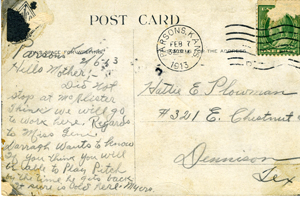 POST CARD
PARSONS, KANS.
FEB 7
1913
THE ADDRESS
Parsons 2/6/13
Hello Mother:-
Did Not
Stop at McAlester
Think we will go
to work here. Regards
to Miss
Darragh Wants to know
if you think you will
be able to Play Pitch
by the time he gets back
sure is Cold here. Myers.
Hettie E. Plowman
#321 E. Chestnut
Dennison
Tex